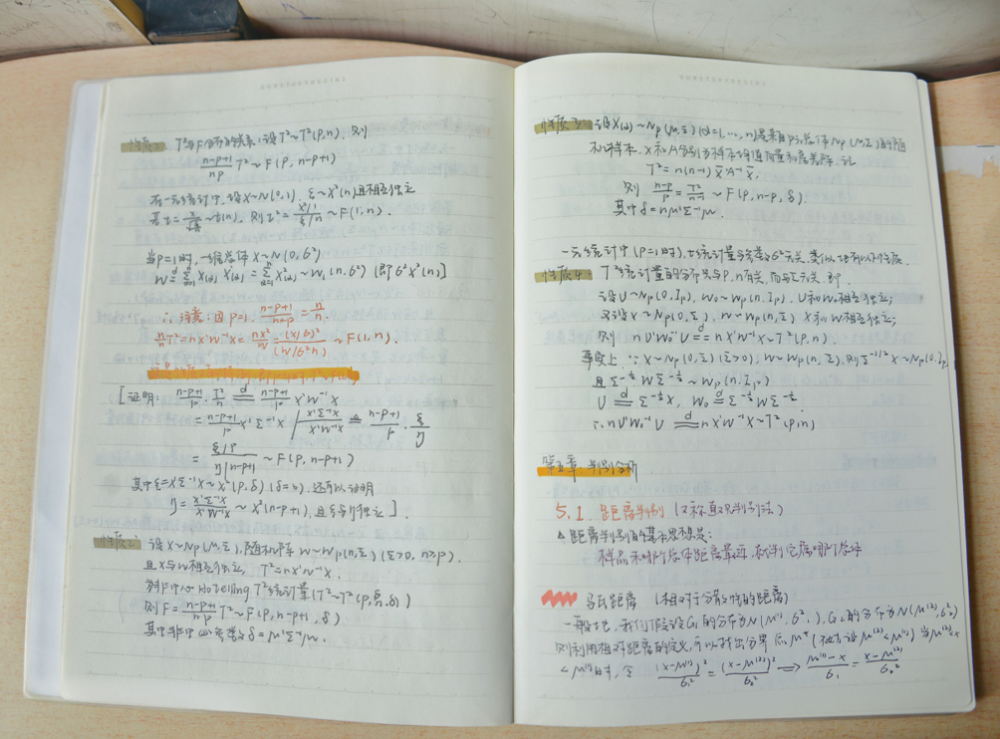 性质1 T²与F分布的关系：设T²~T²(p,n) 则
n-p+1/np T²~F(p, n-p+1)
在一元统计中，设X~N(0,1), ξ~χ²(n)且相互独立
~t(n), 则 t²= X²/1 / ξ/n ~F(1,n).
当p=1时，一维总体X~N(0,σ²)
W = Σ X(α) X'(α) = Σ X²(α) ~ W₁(n,σ²) (即σ²χ²(n))
∴ 注意：因p=1, n-p+1/n·p = n/n.
n/n T² = nX'W⁻¹X = nX²/W = (X/σ)²/(W/σ²n) ~ F(1,n).
[证明： n-p+1/p T²/n =d= n-p+1/p X'W⁻¹X
= n-p+1/p X'Σ⁻¹X / X'Σ⁻¹X/X'W⁻¹X = n-p+1/p · ξ/η
= ξ/p / η/n-p+1 ~ F(p, n-p+1)
其中ξ=X'Σ⁻¹X~χ²(p,δ) 还可以证明
η= X'Σ⁻¹X/X'W⁻¹X ~χ²(n-p+1),且ξ与η独立].
性质2 设X~Np(μ,Σ),随机阵W~Wp(n,Σ)(Σ>0, n≥p).
且X与W相互独立, T²=nX'W⁻¹X.
Hotelling T²统计量
则F= n-p+1/np T²~F(p,n-p+1,δ)
其中非中心参数δ=μ'Σ⁻¹μ.
性质3 设X(α)~Np(μ,Σ)(α=1,…,n)是来自p元总体Np(μ,Σ)的随
机样本，X̄和A分别为样本均值向量和离差阵，记
T²=n(n-1)X̄'A⁻¹X̄.
则 n-p/p T²/n-1 ~ F(p,n-p,δ).
其中δ=nμ'Σ⁻¹μ.
一元统计中(p=1时), t统计量与参数σ²无关,类似地有以下性质.
性质4 T²统计量的分布只与p,n有关,而与Σ无关.即
设U~Np(0,Ip), W₀~Wp(n,Ip), U和W₀相互独立;
又设X~Np(0,Σ), W~Wp(n,Σ) X和W相互独立;
则 nU'W₀⁻¹U =d= nX'W⁻¹X~T²(p,n)
事实上 ∵X~Np(0,Σ)(Σ>0), W~Wp(n,Σ),则Σ⁻¹/²X~Np(0,Ip)
且Σ⁻½WΣ⁻½~Wp(n,Ip)
U =d= Σ⁻½X, W₀ =d= Σ⁻½WΣ⁻½
∴nU'W₀⁻¹U =d= nX'W⁻¹X~T²(p,n)
第五章 判别分析
5.1. 距离判别 (又称直观判别法)
△ 距离判别的基本思想是：
样品和哪个总体距离最近,就判它属哪个总体
马氏距离 (相对于分散性的距离)
一般地,我们假设G₁的分布为N(μ⁽¹⁾,σ₁²),G₂的分布为N(μ⁽²⁾,σ₂²)
则利用相对距离的定义,可以找出分界点μ*(不妨设μ⁽²⁾<μ⁽¹⁾)当μ⁽²⁾<x
<μ⁽¹⁾时,令 (x-μ⁽¹⁾)²/σ₁² = (x-μ⁽²⁾)²/σ₂² ⟹ μ⁽¹⁾-x/σ₁ = x-μ⁽²⁾/σ₂